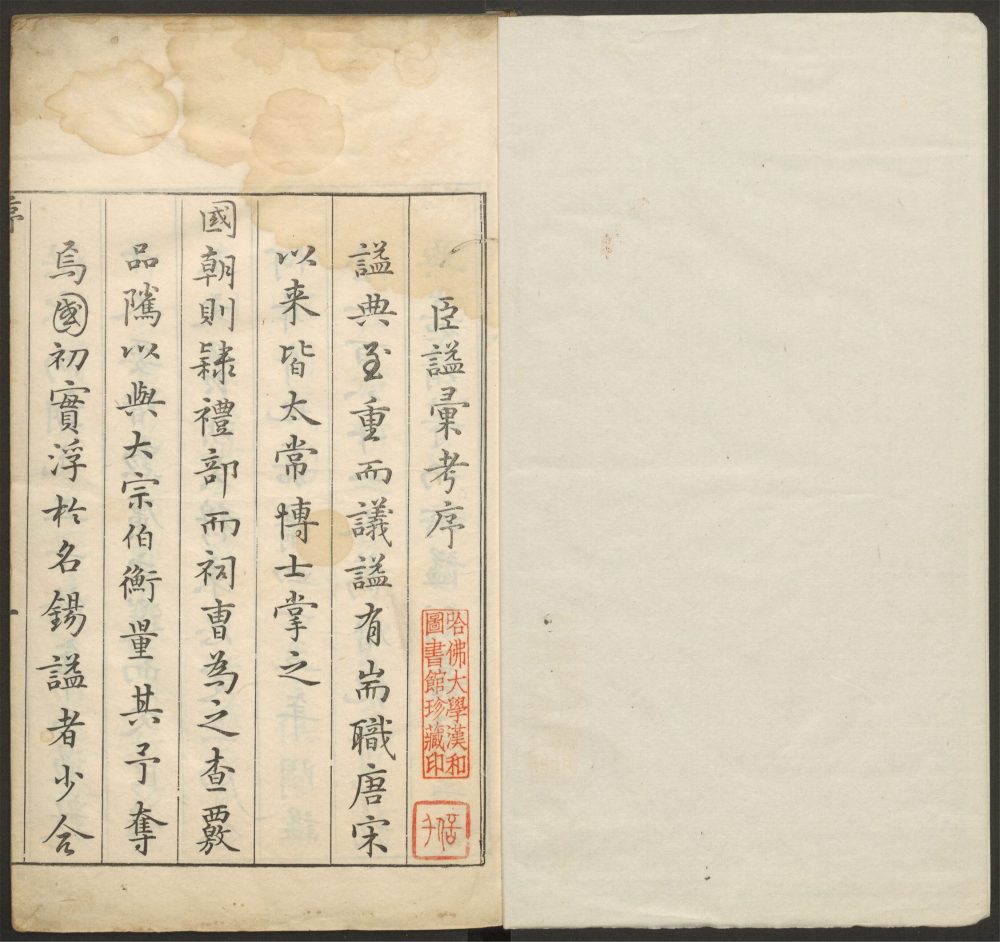 臣謚彙考序
哈佛大學漢和
圖書館珍藏印
謚典至重而議謚有耑職唐宋
以来皆太常博士掌之
國朝則隸禮部而祠曹為之查覈
品隲以與大宗伯衡量其予奪
焉國初實浮於名錫謚者少合
序